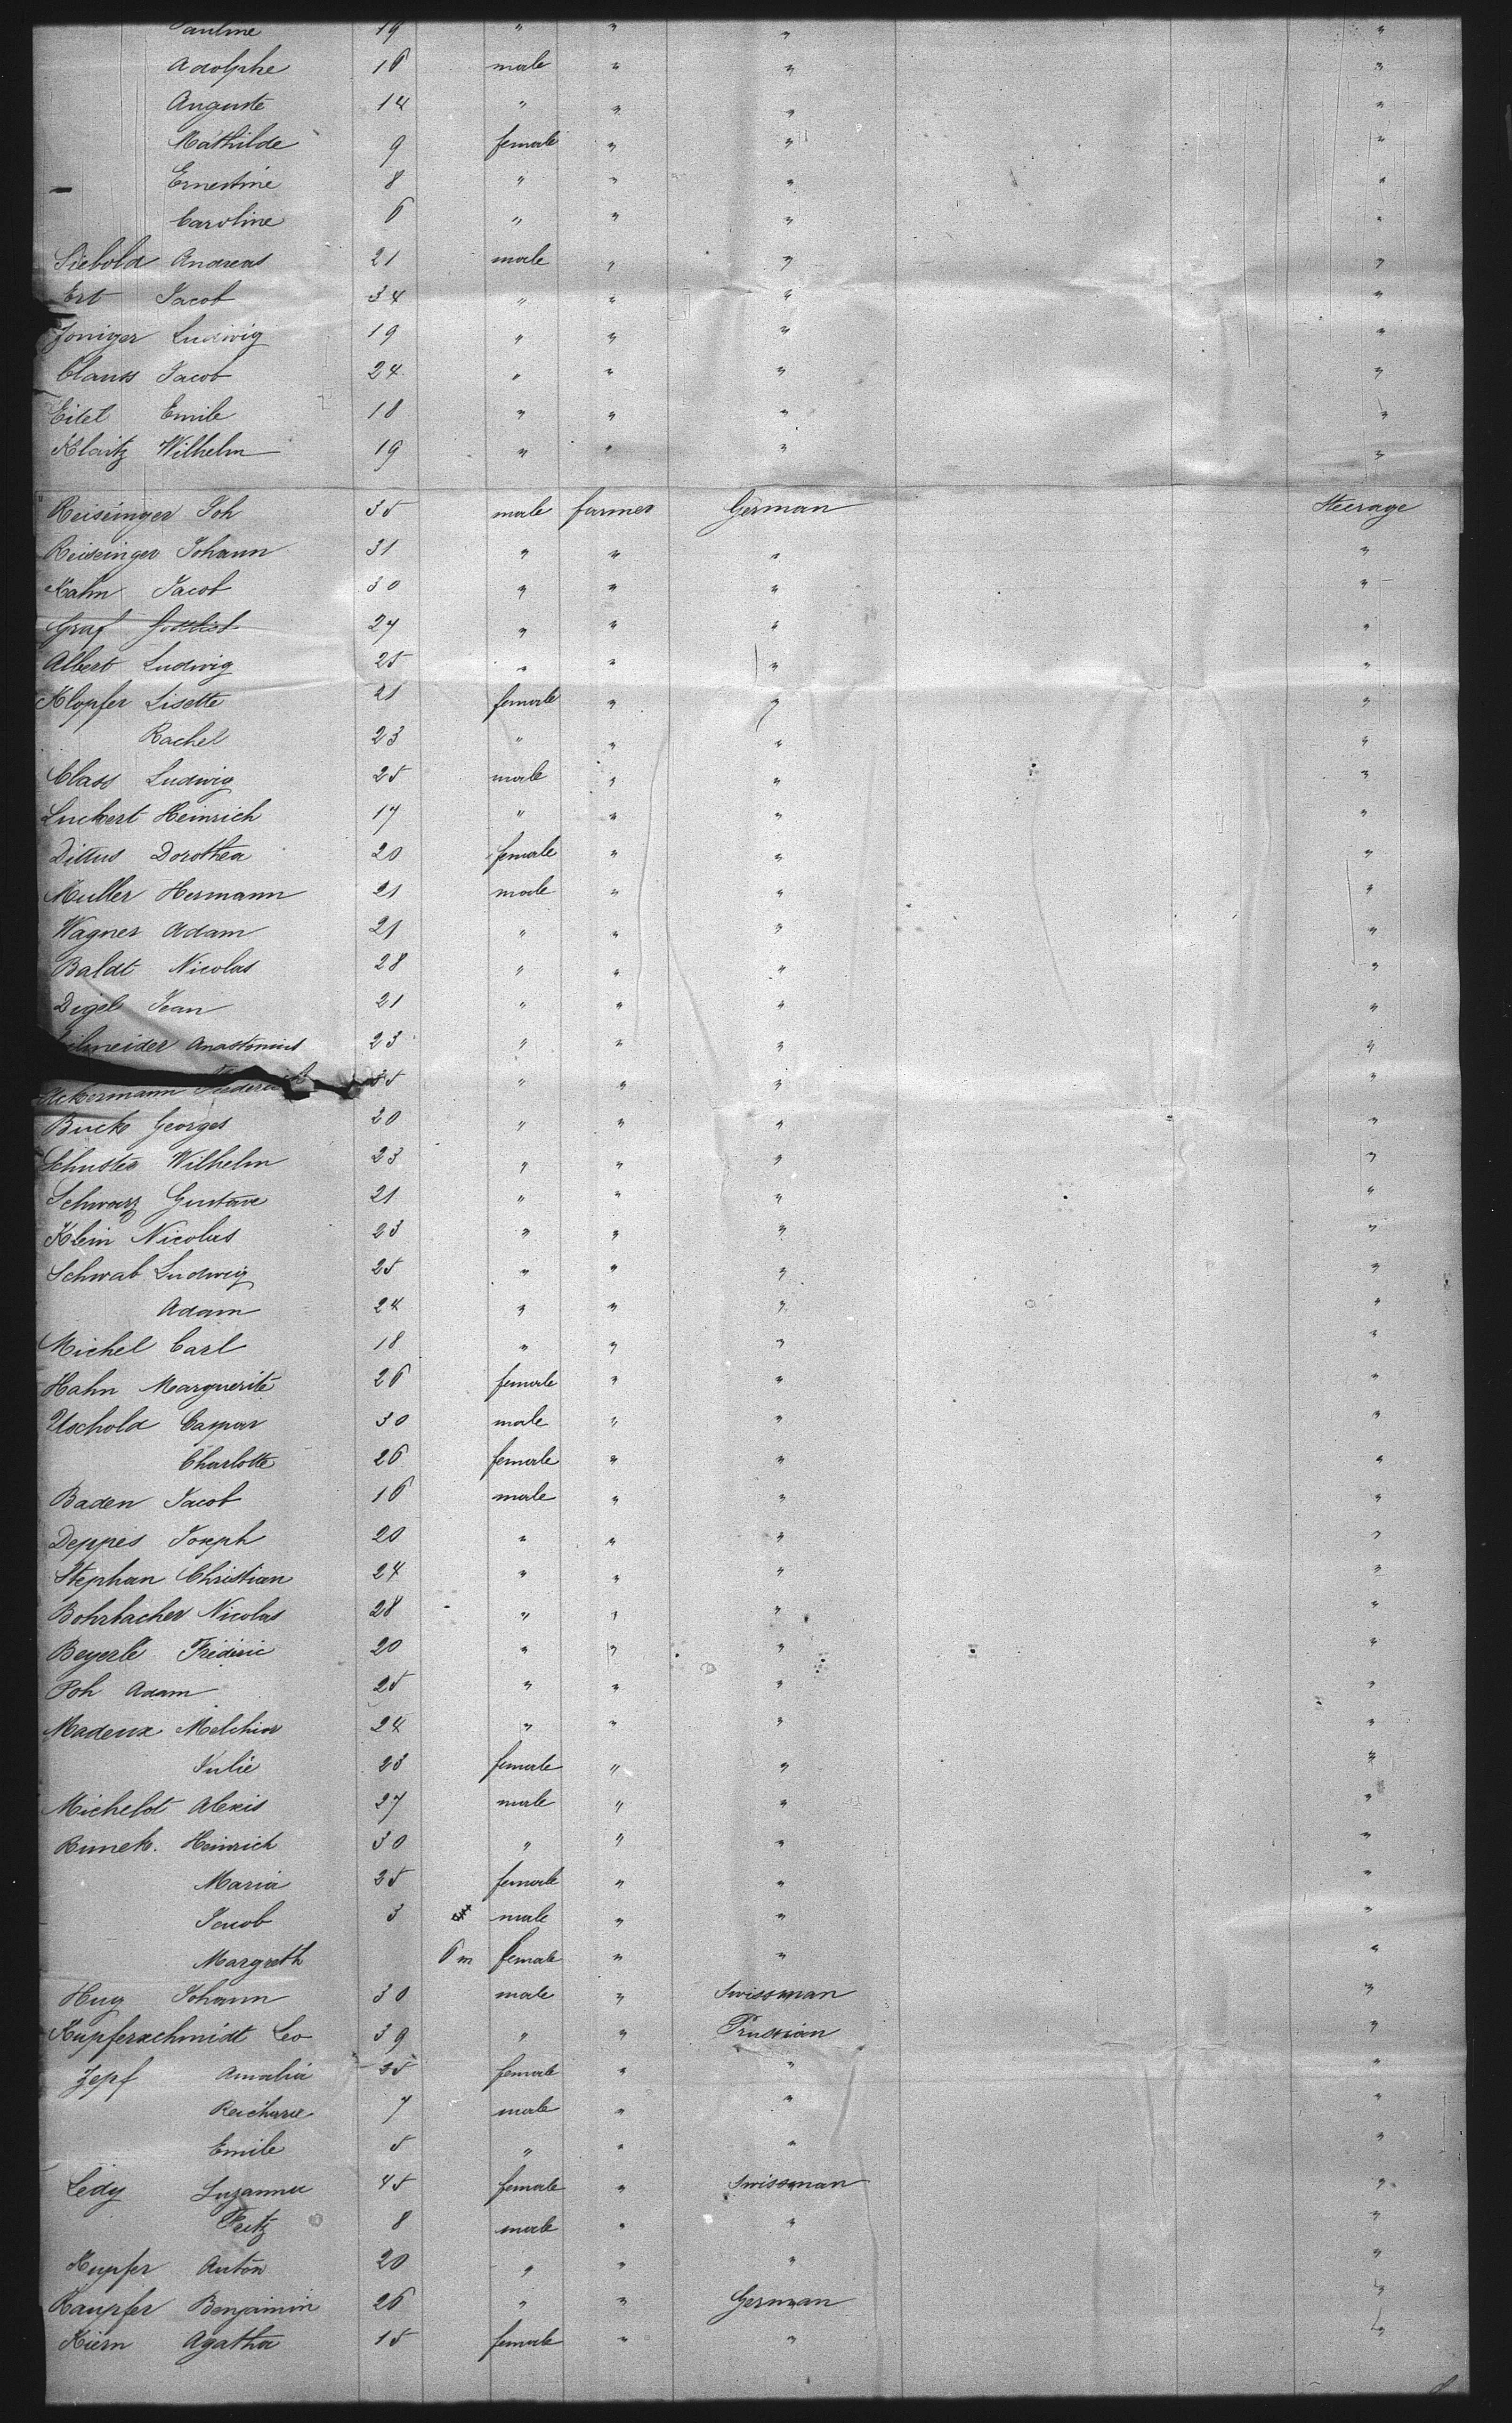 Pauline 19 " " " "
Adolphe 16 male " " "
Auguste 14 " " " "
Mathilde 9 female " " "
Ernestine 8 " " " "
Caroline 6 " " " "
Siebold Andreas 21 male " " "
Ert Jacob 34 " " " "
Joniger Ludwig 19 " " " "
Clauss Jacob 24 " " " "
Eitel Emile 18 " " " "
Klaitz Wilhelm 19 " " " "
Reisinger Joh 35 male farmer German Steerage
Reisinger Johann 31 " " " "
Kahn Jacob 30 " " " "
Graf Gottlieb 27 " " " "
Albert Ludwig 25 " " " "
Klopfer Lisette 21 female " " "
Rachel 23 " " " "
Class Ludwig 25 male " " "
Luckert Heinrich 17 " " " "
Dittus Dorothea 20 female " " "
Muller Hermann 21 male " " "
Wagner Adam 21 " " " "
Baldt Nicolas 28 " " " "
Digel Jean 21 " " " "
23 " " " "
Ackermann " " " "
Buck Georges 20 " " " "
Schuster Wilhelm 23 " " " "
Schwarz Gustave 21 " " " "
Klein Nicolas 23 " " " "
Schwab Ludwig 25 " " " "
Adam 24 " " " "
Michel Carl 18 " " " "
Hahn Marguerite 26 female " " "
Uschold Caspar 30 male " " "
Charlotte 26 female " " "
Baden Jacob 16 male " " "
Deppes Joseph 20 " " " "
Stephan Christian 24 " " " "
Bohrbacher Nicolas 28 " " " "
Beyerle Fréderic 20 " " " "
Poh Adam 25 " " " "
Madeux Melchior 24 " " " "
Julie 23 female " " "
Michelot Alexis 27 male " " "
Runck. Heinrich 30 " " " "
Maria 25 female " " "
Jacob 3 male " " "
Margreth 6 m female " " "
Hug Johann 30 male " Swissman "
Kupferschmidt Leo 39 " " Prussian "
Zepf Amalia 35 female " " "
Reichard 7 male " " "
Emile 5 " " " "
Ledy Suzanna 45 female " Swissman "
Fritz 8 male " " "
Kupfer Anton 20 " " " "
Kaupfer Benjamin 26 " " German "
Kiern Agatha 15 female " " "